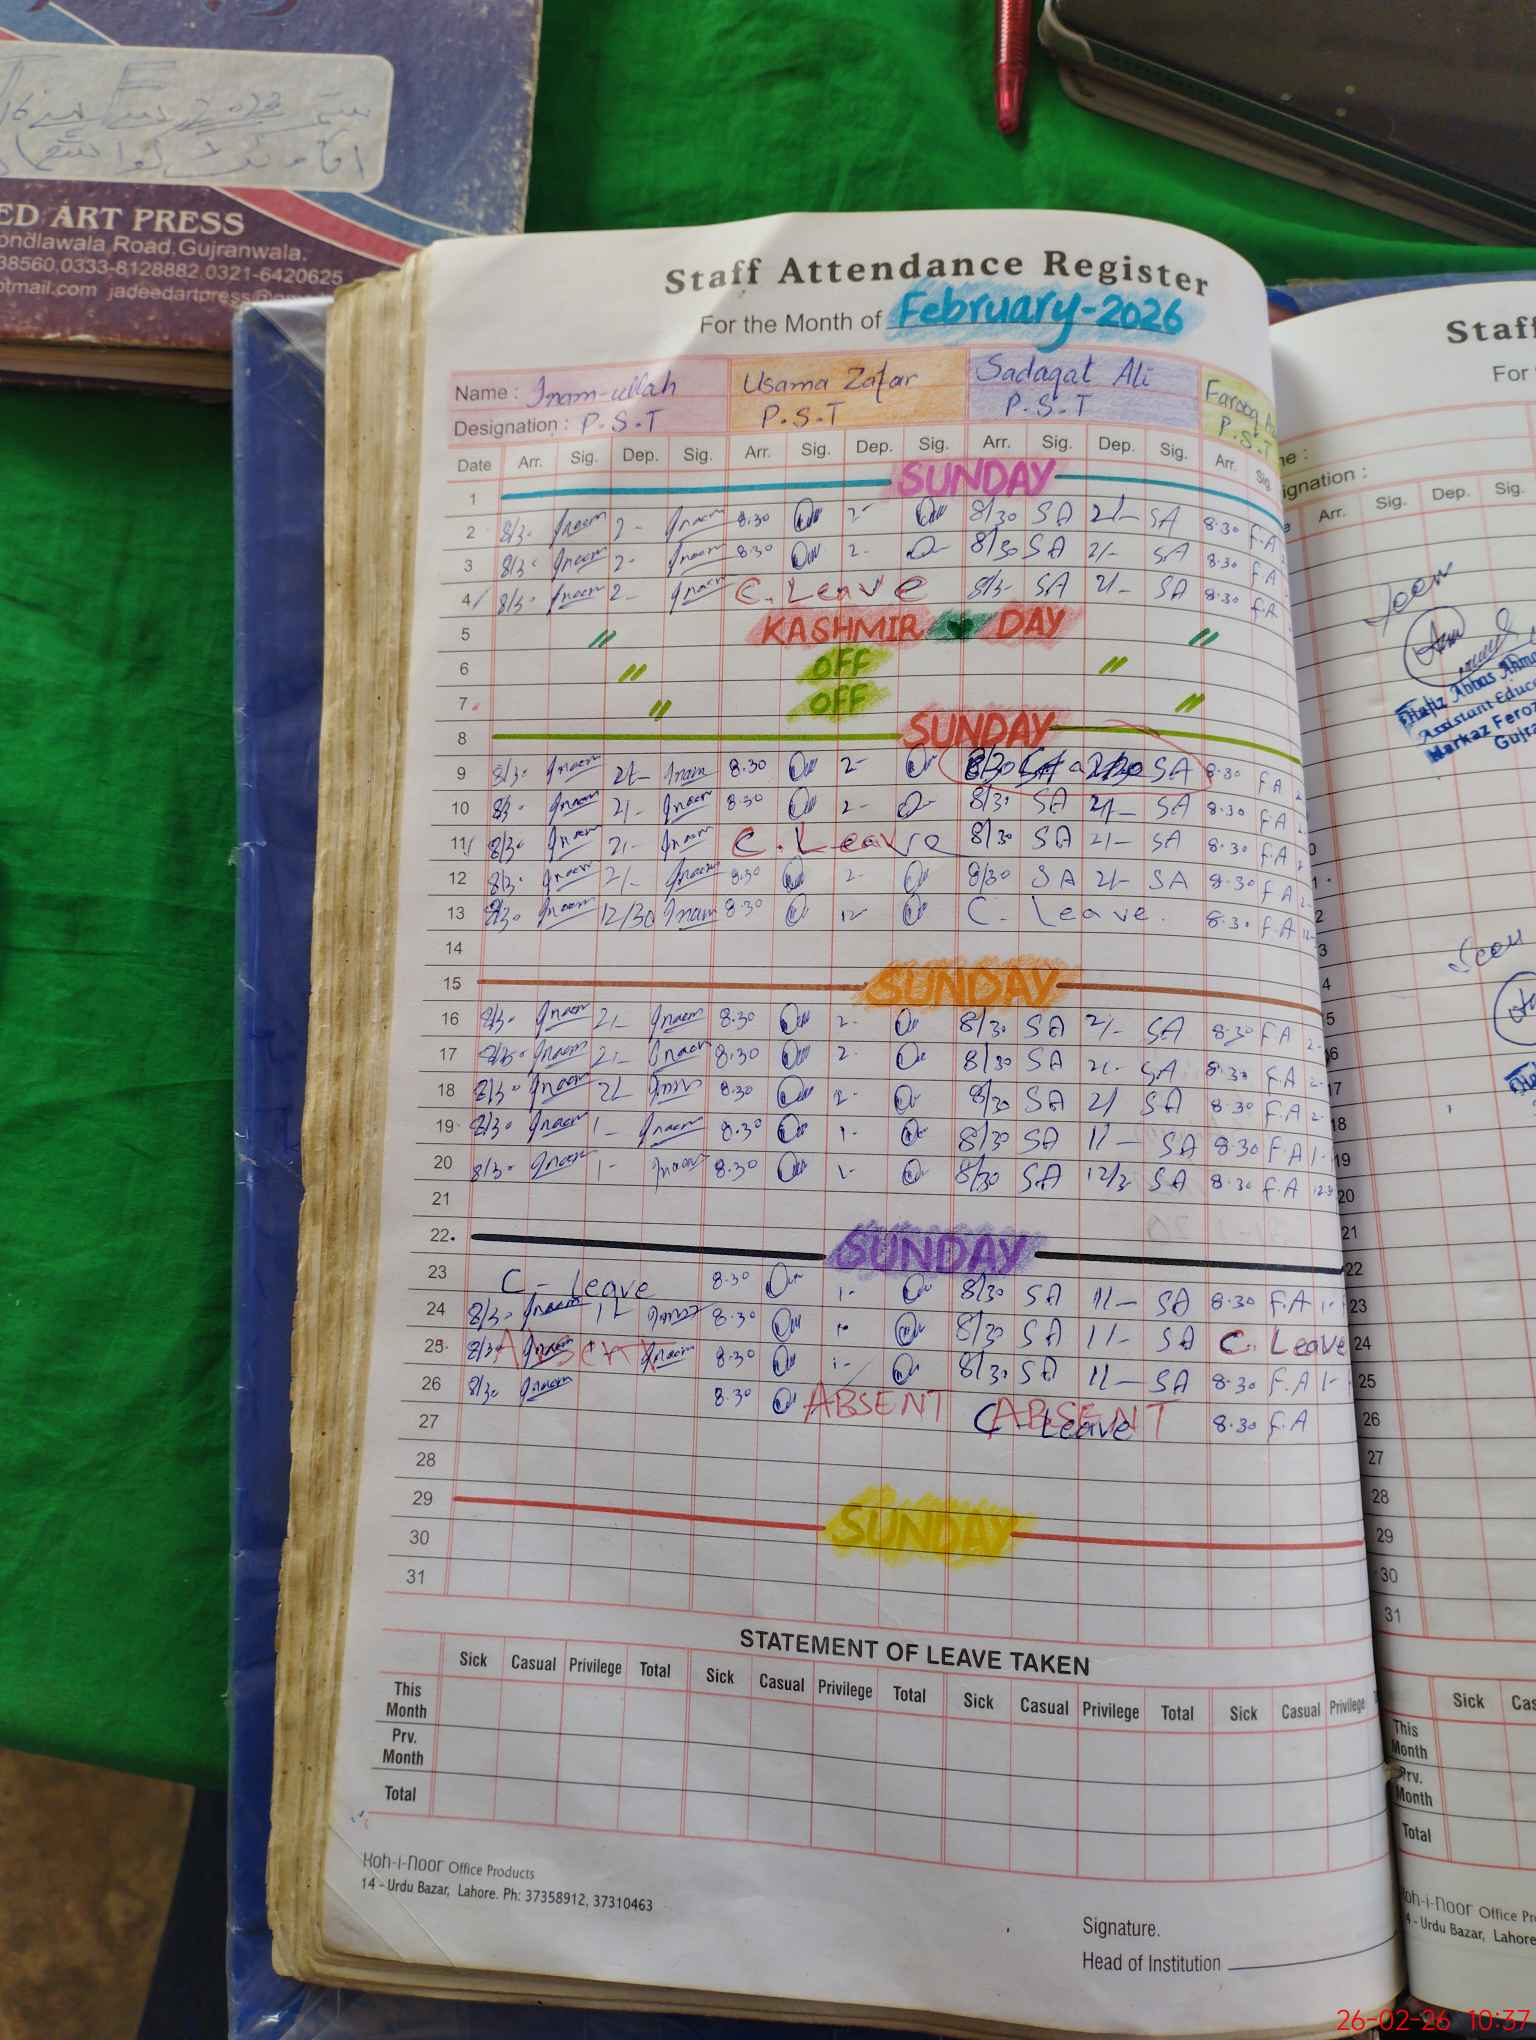 ED ART PRESS
ondlawala Road.Gujranwala.
38560,0333-8128882,0321-6420625
otmail.com jadeedartpress@
Staff Attendance Register
For the Month of February-2026
Name : Inam-ullah Usama Zafar Sadaqat Ali Farooq A
Designation : P.S.T P.S.T P.S.T P.S.T
Date Arr. Sig. Dep. Sig. Arr. Sig. Dep. Sig. Arr. Sig. Dep. Sig. Arr. Sig.
1 SUNDAY
2 8/30 Inam 2- Inam 8.30 2- 8/30 SA 2/- SA 8.30 F.A
3 8/30 Inam 2- Inam 8.30 2- 8/30 SA 2/- SA 8.30 F.A
4 8/30 Inam 2- Inam C. Leave 8/3- SA 2/- SA 8.30 F.A
5 〃 KASHMIR DAY 〃
6 〃 OFF 〃
7 〃 OFF 〃
8 SUNDAY
9 8/30 Inam 2/- Inam 8.30 2- 8/30 SA SA 8.30 F.A
10 8/30 Inam 2/- Inam 8.30 2- 8/30 SA 2/- SA 8.30 F.A
11 8/30 Inam 2/- Inam C. Leave 8/30 SA 2/- SA 8.30 F.A
12 8/30 Inam 2/- Inam 8.30 2- 8/30 SA 2/- SA 8.30 F.A 2-
13 8/30 Inam 12/30 Inam 8.30 12- C. Leave. 8.30 F.A
14
15 SUNDAY
16 8/30 Inam 2/- Inam 8.30 2- 8/30 SA 2/- SA 8.30 F.A 2-
17 8/30 Inam 2/- Inam 8.30 2- 8/30 SA 2/- SA 8.30 F.A 2-
18 8/30 Inam 2/- Inam 8.30 2- 8/30 SA 2/ SA 8.30 F.A 2-
19 8/30 Inam 1- Inam 8.30 1- 8/30 SA 1/- SA 8.30 F.A 1-
20 8/30 Inam 1- Inam 8.30 1- 8/30 SA 12/3 SA 8.30 F.A 12.30
21
22 SUNDAY
23 C- Leave 8.30 1- 8/30 SA 1/- SA 8.30 F.A 1-
24 8/30 Inam 1/- Inam 8.30 1- 8/30 SA 1/- SA C. Leave
25 8/30 Absent Inam Inam 8.30 1- 8/30 SA 1/- SA 8.30 F.A 1-
26 8/30 Inam 8.30 ABSENT ABSENT C Leave 8.30 F.A
27
28
29 SUNDAY
30
31
STATEMENT OF LEAVE TAKEN
Sick Casual Privilege Total Sick Casual Privilege Total Sick Casual Privilege Total Sick Casual Privilege
This Month
Prv. Month
Total
Koh-i-Noor Office Products
14 - Urdu Bazar, Lahore. Ph: 37358912, 37310463
Signature.
Head of Institution
Staff
For
me :
signation :
Arr. Sig. Dep. Sig.
Seen
Hafiz Abbas Ahma
Assistant Educa
Markaz Feroz
Gujra
Seen
12
13
14
15
16
17
18
19
20
21
22
23
24
25
26
27
28
29
30
31
Sick Cas
This Month
Prv. Month
Total
Koh-i-Noor Office Pro
4 - Urdu Bazar, Lahore
26-02-26 10:37